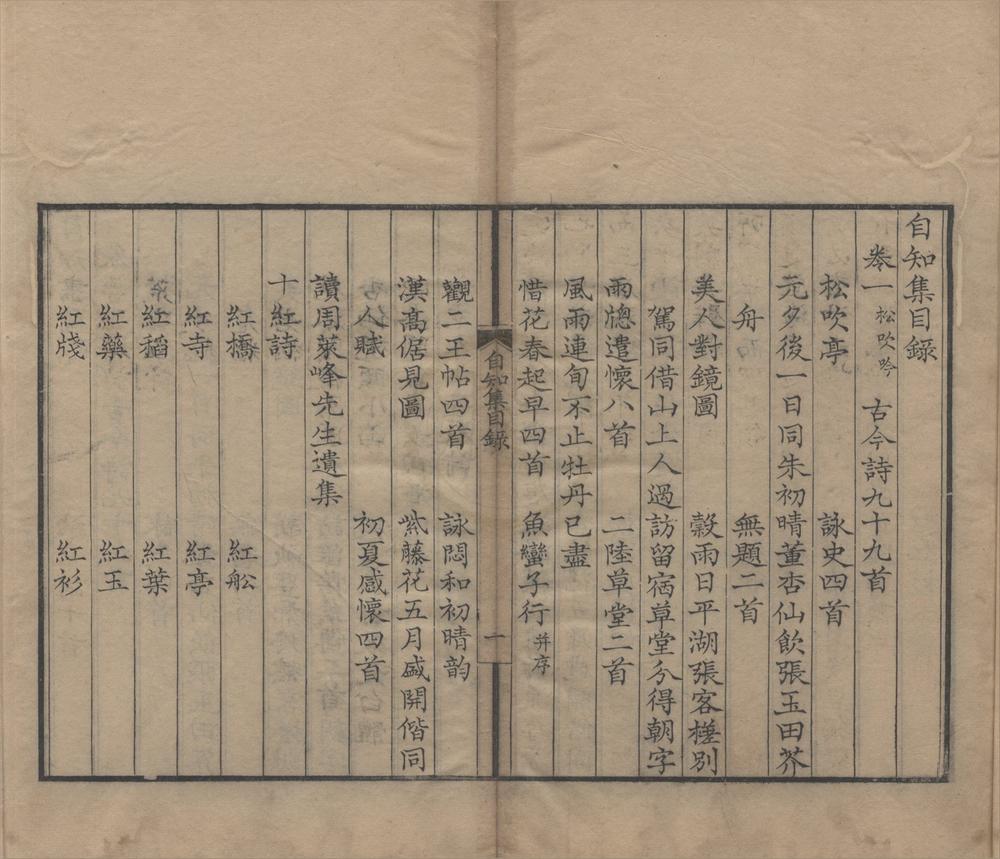 自知集目録
卷一 松吹吟 古今詩九十九首
松吹亭 詠史四首
元夕後一日同朱初晴董杏仙飲張玉田芥
舟 無題二首
美人對鏡圖 穀雨日平湖張客槎別
駕同借山上人過訪留宿草堂分得朝字
雨牕遣懷八首 二陸草堂二首
風雨連旬不止牡丹已盡
惜花春起早四首 魚蠻子行 并序
自知集目録 一
觀二王帖四首 詠悶和初晴韵
漢高倨見圖 紫藤花五月盛開偕同
人賦 初夏感懷四首
讀周萊峰先生遺集
十紅詩
紅橋 紅舩
紅寺 紅亭
紅稻 紅葉
紅藥 紅玉
紅牋 紅衫